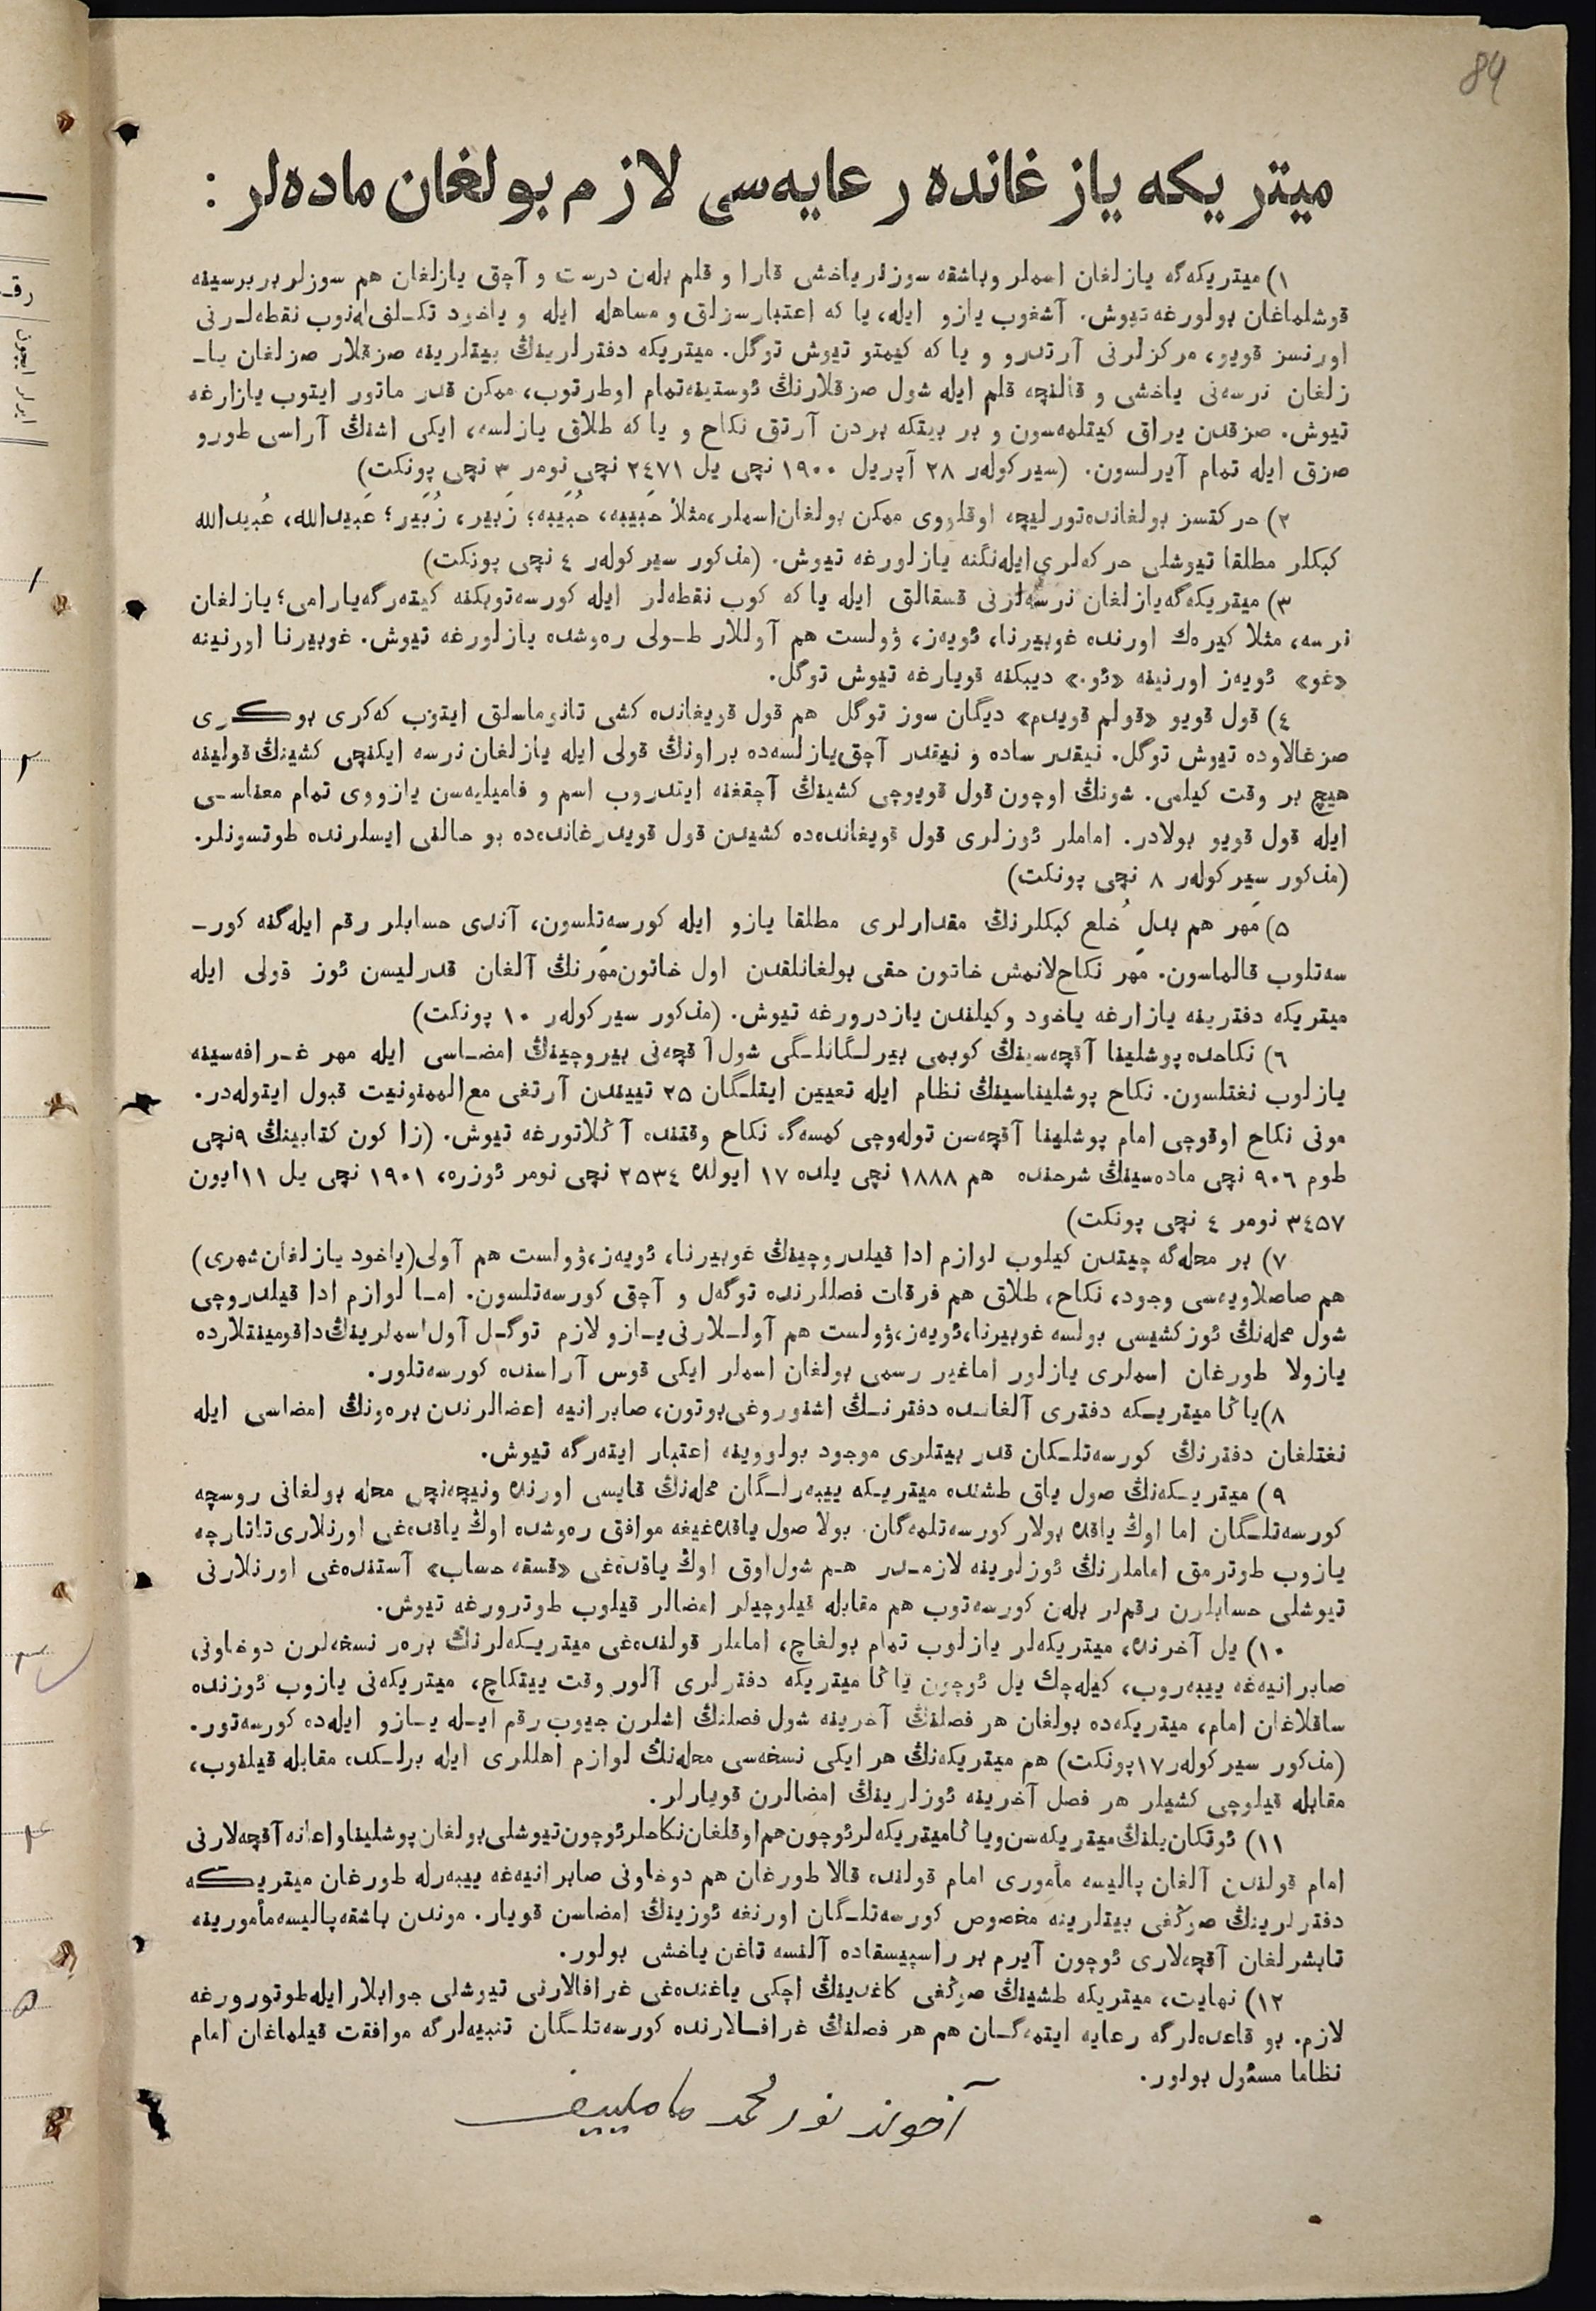 84
میتریکه یازغانده رعایه‌سی لازم بولغان ماده‌لر :
۱) میتریکه‌گه یازلغان اسملر وباشقه سوزلر یاخشی قارا و قلم بله‌ن درست و آچق یازلغان هم سوزلر بر برسینه
قوشلماغان بولورغه تیوش. آشغوب یازو ایله، یا که اعتبارسزلق و مساهله ایله و یاخود تکـلفی‌له‌نوب نقطه‌لـرنی
اورنسز قویو، مرکزلرنی آرتدرو و یا که کیمتو تیوش توگل. میتریکه دفترلرینڭ بیتلرینه صزقلار صزلغان یا-
زلغان نرسه‌نی یاخشی و قالنچه قلم ایله شول صزقلارنڭ ئوستینه تمام اوطرتوب، ممکن قدر ماتور ایتوب یازارغه
تیوش. صزقدن یراق کیتلمه‌سون و بر بیتکه بردن آرتق نکاح و یا که طلاق یازلسه، ایکی اشنڭ آراسی طورو
صزق ایله تمام آیرلسون. (سیرکوله‌ر ۲۸ آپریل ۱۹۰۰ نچی یل ۲٤۷۱ نچی نومر ۳ نچی پونکت)
۲) حرکتسز بولغانده تورلیچه اوقلووی ممکن بولغان اسملر، مثلا حَبیبه، حُبَیبه؛ زَبیر، زُبَیر؛ عَبیدالله، عُبیدالله
کبکلر مطلقا تیوشلی حرکه‌لری ایله‌نگنه یازلورغه تیوش. (مذکور سیرکوله‌ر ٤ نچی پونکت)
۳) میتریکه‌گه یازلغان نرسه‌لرنی قسقالق ایله یا که کوب نقطه‌لر ایله کورسه‌توبکنه کیته‌رگه یارامی؛ یازلغان
نرسه، مثلا کیره‌ك اورنده غوبیرنا، ئویه‌ز، ۋولست هم آوللار طـولی ره‌وشده یازلورغه تیوش. غوبیرنا اورنینه
«غو» ئویه‌ز اورنینه «ئو.» دیبکنه قویارغه تیوش توگل.
٤) قول قویو «قولم قویدم» دیگان سوز توگل هم قول قویغانده کشی تانوماسلق ایتوب که‌کری بوکری
صزغالاوده تیوش توگل. نیقدر ساده و نیقدر آچق یازلسه‌ده براونڭ قولی ایله یازلغان نرسه ایکنچی کشینڭ قولینه
هیچ بر وقت کیلمی. شونڭ اوچون قول قویوچی کشینڭ آچقغنه ایتدروب اسم و فامیلیه‌سن یازووی تمام معناسـی
ایله قول قویو بولادر. اماملر ئوزلری قول قویغانده‌ده کشیدن قول قویدرغانده‌ده بو حالنی ایسلرنده طوتسونلر.
(مذکور سیرکوله‌ر ۸ نچی پونکت)
۵) مَهر هم بدلِ خُلع کبکلرنڭ مقدارلری مطلقا یازو ایله کورسه‌تلسون، آندی حسابلر رقم ایله‌گنه کور-
سه‌تلوب قالماسون. مَهر نکاح‌لانمش خاتون حقی بولغانلقدن اول خاتون مَهرنڭ آلغان قدرلیسن ئوز قولی ایله
میتریکه دفترینه یازارغه یاخود وکیلندن یازدرورغه تیوش. (مذکور سیرکوله‌ر ۱۰ پونکت)
٦) نکاحده پوشلینا آقچه‌سینڭ کوبمی بیرلـگانلـگی شول آقچه‌نی بیروچینڭ امضـاسی ایله مهر غـرافه‌سینه
یازلوب نغتلسون. نکاح پوشلیناسینڭ نظام ایله تعیین ایتلـگان ۲۵ تییندن آرتغی مع‌الممنونیت قبول ایتوله‌در.
مونی نکاح اوقوچی امام پوشلینا آقچه‌سن توله‌وچی کمسه‌گه نکاح وقتنده آڭلاتورغه تیوش. (زاکون کتابینڭ ۹نچی
طوم ۹۰٦ نچی ماده‌سینڭ شرحنده هم ۱۸۸۸ نچی یلده ۱۷ ایولده ۲۵۳٤ نچی نومر ئوزره، ۱۹۰۱ نچی یل ۱۱ایون
۳٤۵۷ نومر ٤ نچی پونکت)
۷) بر محله‌گه چیتدن کیلوب لوازم ادا قیلدروچینڭ غوبیرنا، ئویه‌ز، ۋولست هم آولی (یاخود یازلغان شهری)
هم صاصلاویه‌سی وجود، نکاح، طلاق هم فرقات فصللرنده توگه‌ل و آچق کورسه‌تلسون. امـا لوازم ادا قیلدروچی
شول محله‌نڭ ئوز کشیسی بولسه غوبیرنا، ئویه‌ز، ۋولست هم آولـلارنی یـازو لازم توگـل آول اسملرینڭ داقومینتلارده
یازولا طورغان اسملری یازلور اماغیر رسمی بولغان اسملر ایکی قوس آراسنده کورسه‌تلور.
۸) یاڭا میتریـکه دفتری آلغانـده دفترنـڭ اشنوروغی بوتون، صابرانیه اعضالرندن بره‌ونڭ امضاسی ایله
نغتلغان دفترنڭ کورسه‌تلـکان قدر بیتلری موجود بولووینه اعتبار ایته‌رگه تیوش.
۹) میتریـکه‌نڭ صول یاق طشنده میتریـکه ییبه‌رلـگان محله‌نڭ قایسی اورنده ونیچه‌نچی محله بولغانی روسچه
کورسه‌تلـگان اما اوڭ یاقده بولار کورسه‌تلمه‌گان. بولا صول یاقده‌غیغه موافق ره‌وشده اوڭ یاقده‌غی اورنلاری تاتارچه
یازوب طوترمق اماملرنڭ ئوزلرینه لازمـدر هـم شول‌اوق اوڭ یاقده‌غی «قسقه حساب» آستنده‌غی اورنلارنی
تیوشلی حسابلرن رقملر بله‌ن کورسه‌توب هم مقابله قیلوچیلر امضالر قیلوب طوترورغه تیوش.
۱۰) یل آخرنده، میتریکه‌لر یازلوب تمام بولغاچ، اماملر قولنده‌غی میتریـکه‌لرنڭ بره‌ر نسخه‌لرن دوخاونی
صابرانیه‌غه ییبه‌روب، کیله‌چك یل ئوچون یاڭا میتریکه دفترلری آلور وقت ییتکاچ، میتریکه‌نی یازوب ئوزنده
ساقلاغان امام، میتریکه‌ده بولغان هر فصلنڭ آخرینه شول فصلنڭ اشلرن جیوب رقم ایـله یـازو ایله‌ده کورسه‌تور.
(مذکور سیرکوله‌ر ۱۷پونکت) هم میتریکه‌نڭ هر ایکی نسخه‌سی محله‌نڭ لوازم اهللری ایله برلـکده مقابله قیلنوب،
مقابله قیلوچی کشیلر هر فصل آخرینه ئوزلرینڭ امضالرن قویارلر.
۱۱) ئوتکان یلنڭ میتریکه‌سن ویاڭا میتریکه‌لر ئوچون هم اوقلغان نکاحلر ئوچون تیوشلی بولغان پوشلینا واعانه آقچه‌لارنی
امام قولندن آلغان پالیسه مأموری امام قولنده قالا طورغان هم دوخاونی صابرانیه‌غه ییبه‌رله طورغان میتریکه
دفترلرینڭ صوڭغی بیتلرینه مخصوص کورسه‌تلـگان اورنغه ئوزینڭ امضاسن قویار. موندن باشقه پالیسه مأمورینه
تابشرلغان آقچه‌لاری ئوچون آیرم بر راسپیسقاده آلنسه تاغن یاخشی بولور.
۱۲) نهایت، میتریکه طشینڭ صوڭغی کاغدینڭ اچکی یاغنده‌غی غرافالارنی تیوشلی جوابلار ایله طوتورورغه
لازم. بو قاعده‌لرگه رعایه ایتمه‌گـان هم هر فصلنڭ غرافـالارنده کورسه‌تلـگان تنبیه‌لرگه موافقت قیلماغان امام
نظاما مسئول بولور.
آخوند نورمحمد ماملییف